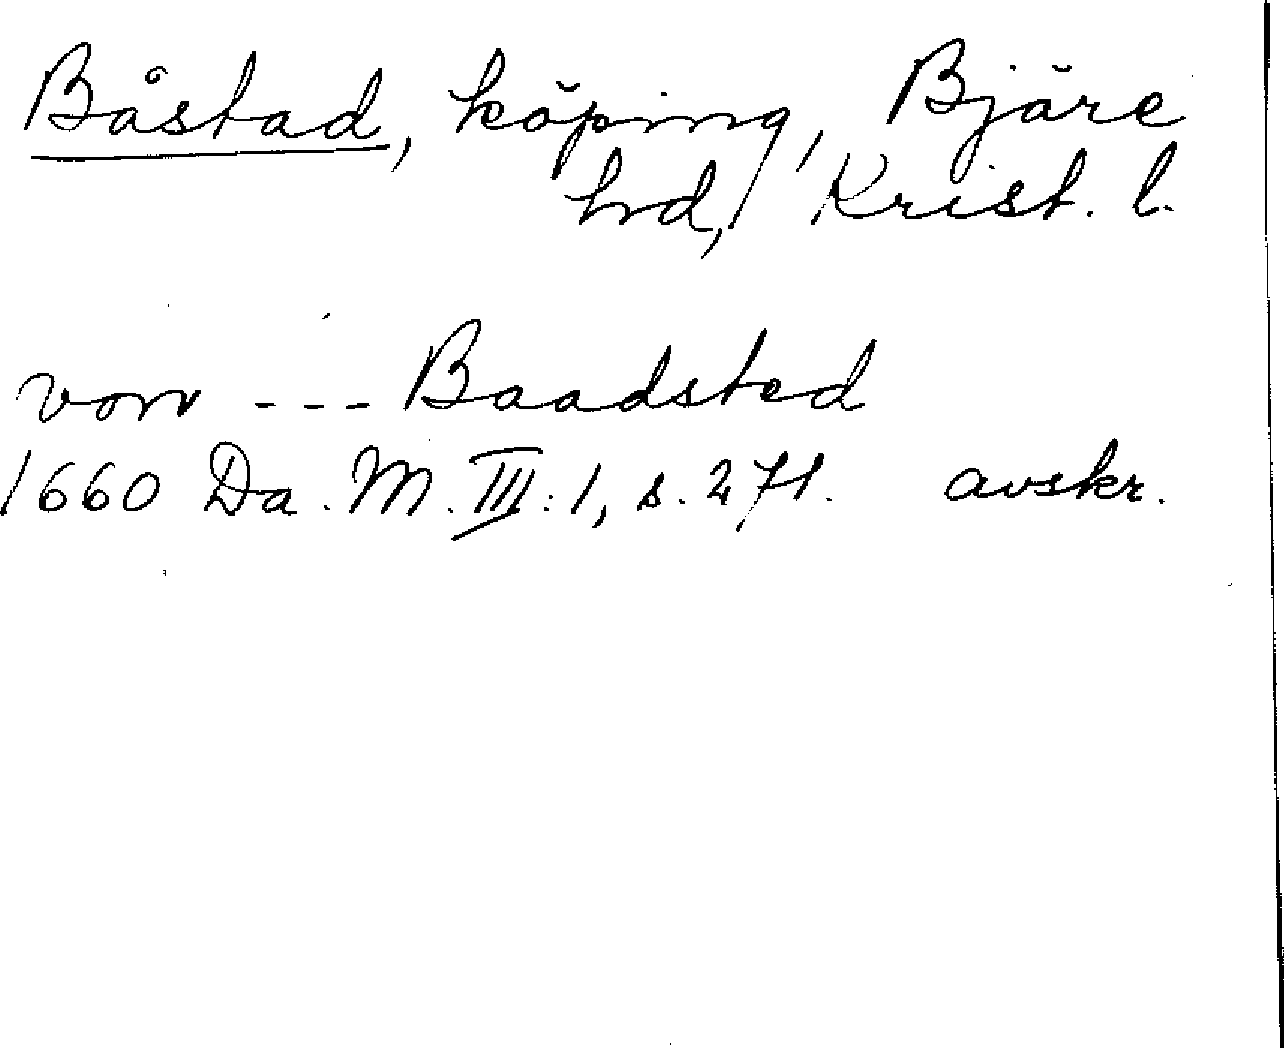 Båstad, köping, Bjäre
hrd, Krist. l.
von --- Baadsted
1660 Da. M. III:1, s. 271. avskr.